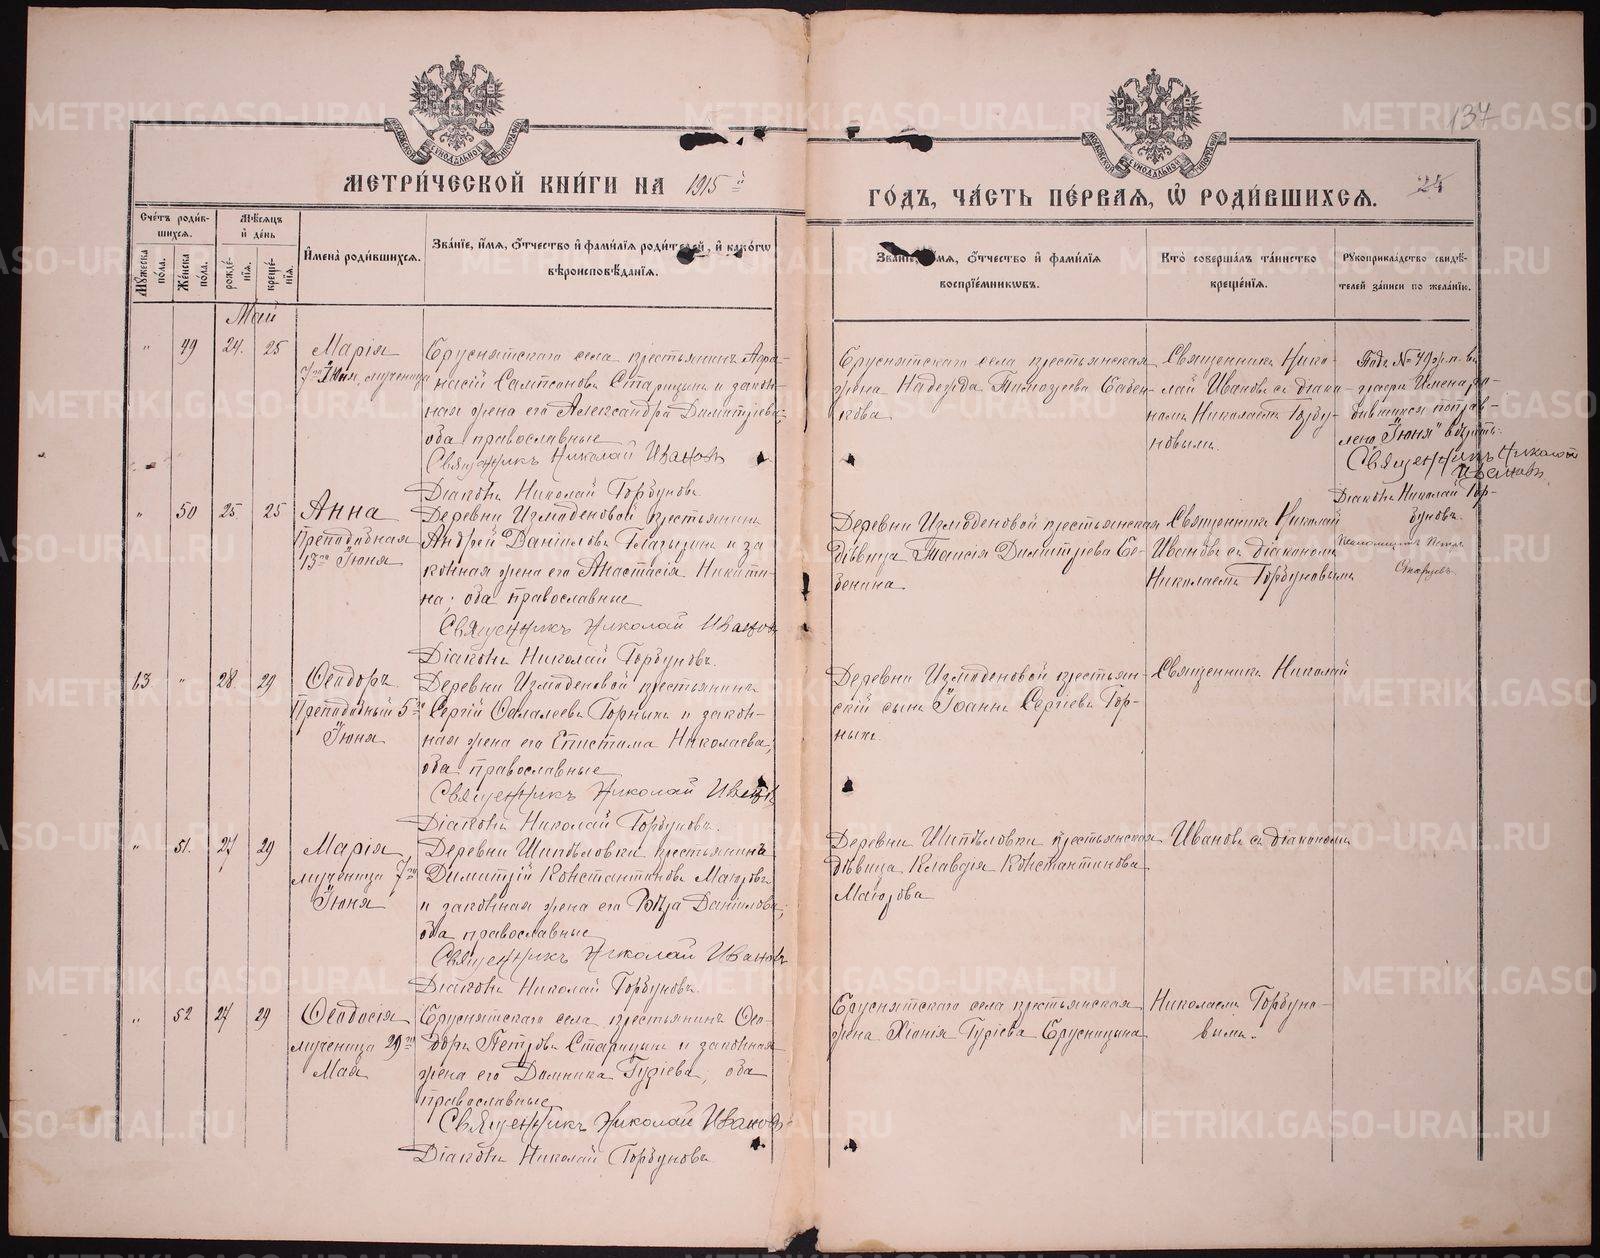 137
МЕТРИ́ЧЕСКОЙ КНИ́ГИ НА 1915й
ГО́ДЪ, ЧА́СТЬ ПЕ́РВАЯ, Ѡ РОДИ́ВШИХСЯ.
24
Сче́тъ роди́в-
шихся.
Мѣ́сяцъ
и́ де́нь
Му́жеска по́ла.
Же́нска по́ла.
рожде́-
нія.
креще́-
нія.
И́мена роди́вшихся.
Зва́ніе, и́мя, о́тчество и́ фами́лія роди́телей, и́ како́гѡ
вѣроисповѣ́данія.
Зва́ніе, и́мя, о́тчество и́ фами́лія
воспріе́мниковъ.
Кто̀ соверша́лъ та́инство
креще́нія.
Рукоприкла́дство свидѣ́-
телей за́писи по жела́нію.
Май
" 49 24. 25
Марія
7го Іюня, мученица
Бруснятскаго села крестьянинъ Афа-
насій Сампсоновъ Старицынъ и закон-
ная жена его Александра Димитріева;
оба православные
Священникъ Николай Ивановъ
Діаконъ Николай Горбуновъ
Бруснятскаго села крестьянская
жена Надежда Тимофеева
Священникъ Нико-
лай Ивановъ съ діако-
номъ Николаемъ Горбу-
новымъ.
Подъ № 49 ж. п. въ
графѣ Имена ро-
дившихся поправ-
лено "Іюня" вѣрить.
Священникъ Николай
Ивановъ
Діаконъ Николай Гор-
буновъ.
Псаломщикъ Петръ
" 50 25. 25
Анна
Преподобная
13го Іюня
Деревни Измоденовой крестьянинъ
Андрей Даніиловъ Глазыринъ и за
конная жена его Анастасія Никити-
на; оба православные
Священникъ Николай Ивановъ
Діаконъ Николай Горбуновъ.
Деревни Измоденовой крестьянская
дѣвица Таисія Димитріева
Священникъ Николай
Ивановъ съ діакономъ
Николаемъ Горбуновымъ
63 " 28. 29
Ѳеодоръ
Преподобный 5го
Іюня
Деревни Измоденовой крестьянинъ
Сергій Ѳалалеевъ Горныхъ и закон-
ная жена его Епистима Николаева;
оба православные
Священникъ Николай Ивановъ
Діаконъ Николай Горбуновъ.
Деревни Измоденовой крестьян-
скій сынъ Іоаннъ Сергіевъ Гор-
ныхъ.
Священникъ Николай
" 51. 27 29
Марія
мученица 7го
Іюня
Деревни Шипѣловки крестьянинъ
Димитрій Константиновъ Маюровъ
и законная жена его Вѣра Даніилова;
оба православные
Священникъ Николай Ивановъ
Діаконъ Николай Горбуновъ.
Деревни Шипѣловки крестьянская
дѣвица Клавдія Константинова
Маюрова
Ивановъ съ діакономъ
" 52 27 29
Ѳеодосія
мученица 29го
Мая
Бруснятскаго села крестьянинъ Ѳео-
доръ Петровъ Старицынъ и законная
жена его Домника Гуріева, оба
православные
Священникъ Николай Ивановъ
Діаконъ Николай Горбуновъ
Бруснятскаго села крестьянская
жена Хіонія Гуріева Брусницына
Николаемъ Горбуно-
вымъ.